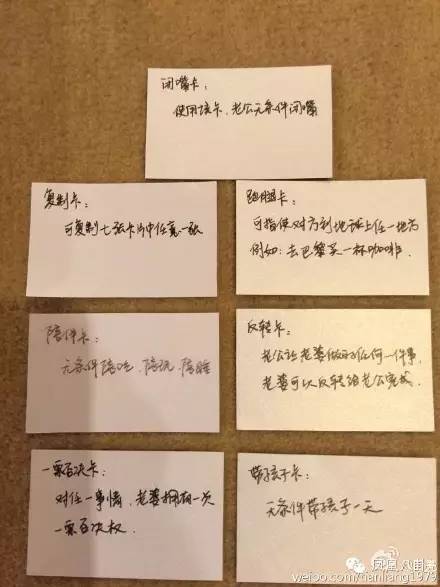 闭嘴卡：
使用该卡，老公无条件闭嘴
复制卡：
可复制七张卡片中任意一张
跑腿卡：
可指使对方到地球上任一地方
例如：去巴黎买一杯咖啡．
陪伴卡：
无条件陪吃、陪玩、陪睡
反转卡：
老公让老婆做的任何一件事，
老婆可以反转给老公完成．
一票否决卡：
对任一事情，老婆拥有一次
一票否决权．
带孩子卡：
无条件带孩子一天
凤凰八卦
weibo.com/nanliang1979